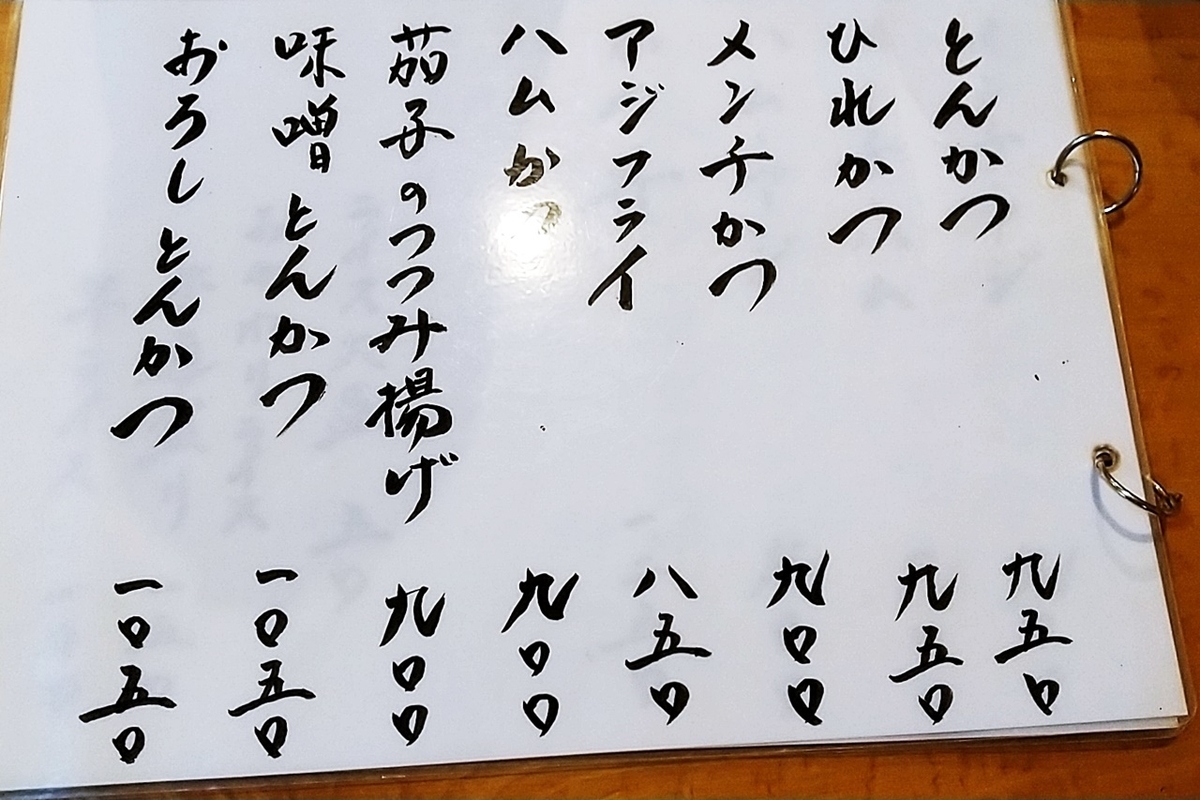 とんかつ 九五〇
ひれかつ 九五〇
メンチかつ 九〇〇
アジフライ 八五〇
ハムかつ 九〇〇
茄子のつつみ揚げ 九〇〇
味噌とんかつ 一〇五〇
おろしとんかつ 一〇五〇